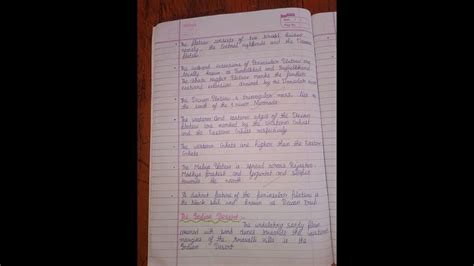 The Plateau consists of two broad divisions
namely the Central Highlands and the Deccan
Plateau
The eastward extensions of Peninsular Plateau are
locally known as Bundelkhand and Baghelkhand
The Chota nagpur Plateau marks the further
eastward extension drained by the Damodar river
The Deccan Plateau triangular mass lies to
the south of the river Narmada
The western and eastern edges of the Deccan
Plateau are marked by the Western Ghats
and the Eastern Ghats respectively
The western Ghats are higher than the Eastern
Ghats
The Malwa Plateau is spread across Rajasthan
Madhya Pradesh and Gujarat and
towards the north
A distinct feature of the Peninsular Plateau is
the black soil area known as Deccan Trap
The Indian Desert :-
The undulating sandy plain
covered with sand dunes towards the western
margins of the Aravalli Hills is the
Indian Desert